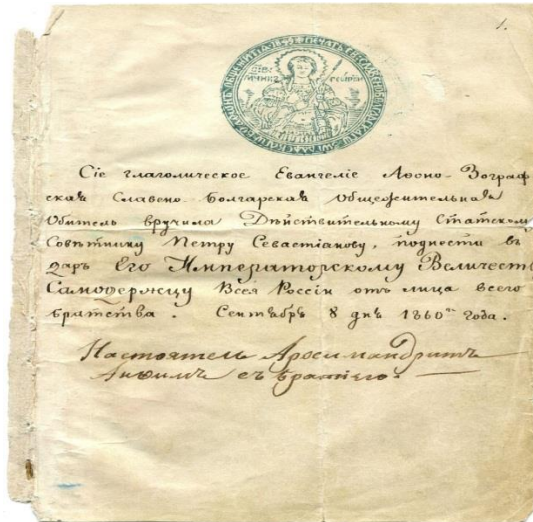 1.
Сіе глаголическое Евангеліе Аѳоно-Зограф
ская Славено-Болгарская Общежительная
Обитель вручила Дѣйствительному Статскому
Совѣтнику Петру Севастіанову, поднести въ
даръ Его Императорскому Величест
Самодержцу Всея Россіи отъ лица всего
братства. Сентябрь 8 дня 1860го года.
Настоятель Архимандритъ
Анѳимъ съ братіею.